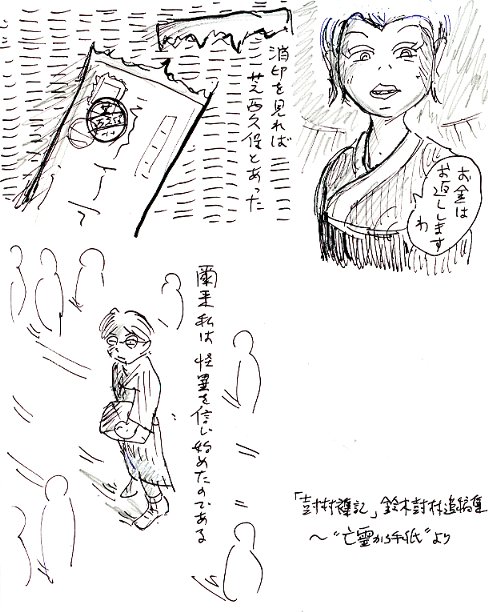 お金は
お返しします
わ
消印を見れば
芝西久保とあった
爾来私は怪異を信じ始めたのである
鈴木
追稿集
〜"亡霊から手紙"より